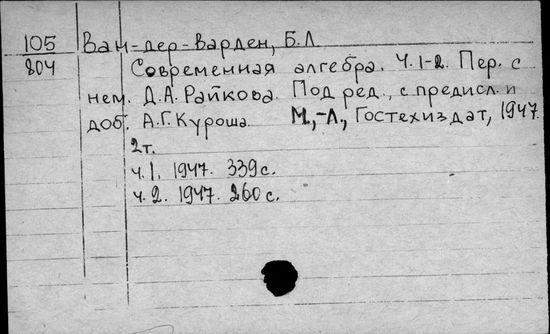 105 Ван-дер-Варден, Б.Л.
804 Современная алгебра. Ч.1-2. Пер. с
нем. Д.А. Райкова. Под ред., с предисл. и
доб. А.Г. Куроша. М,-Л., Гостехиздат, 1947.
2т.
ч.1. 1947. 339с.
ч.2. 1947. 260с.